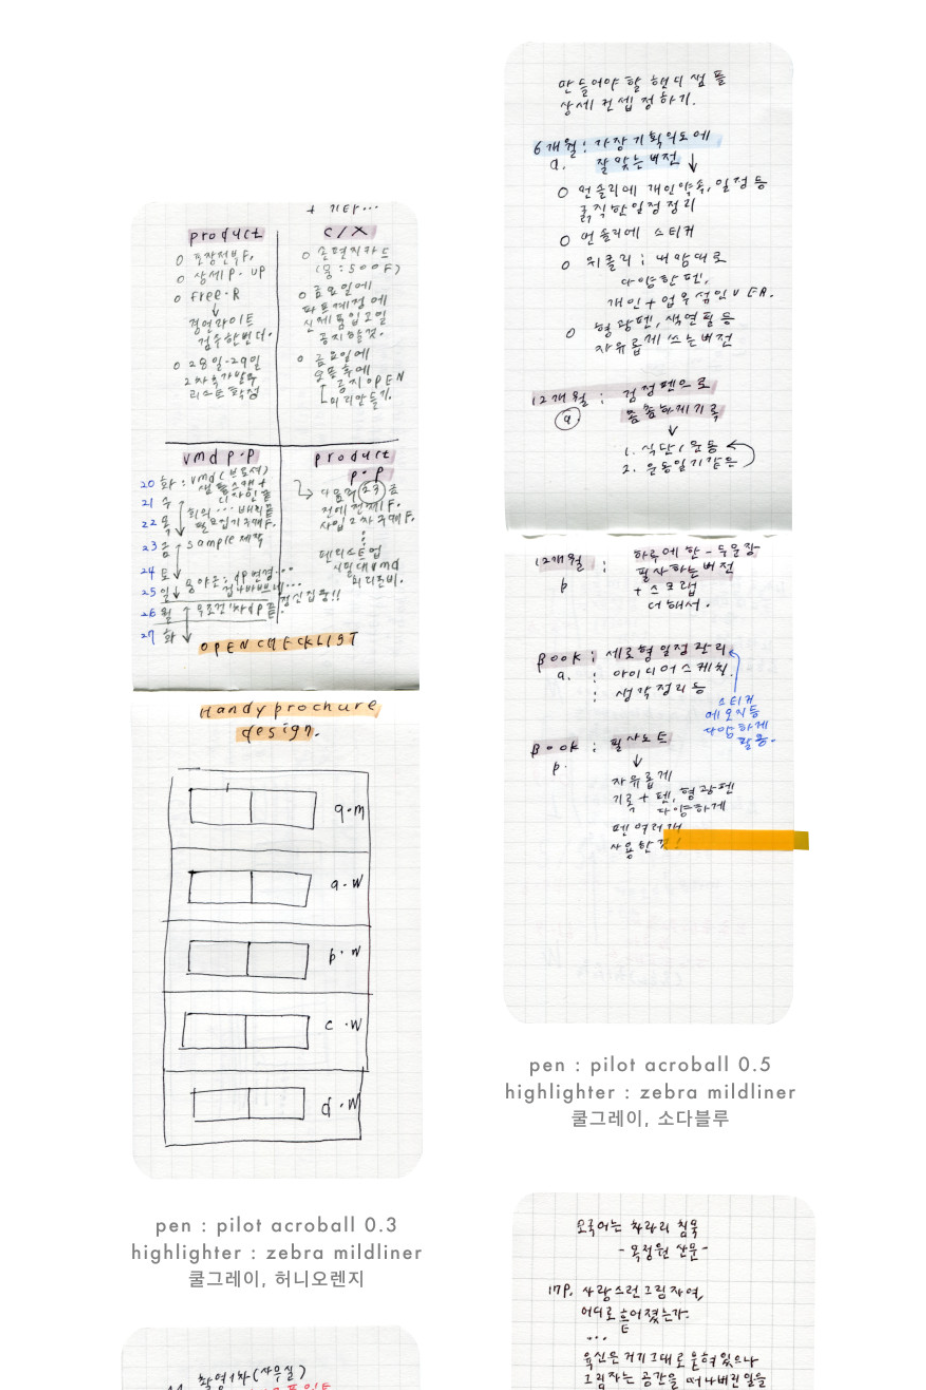 + 기타...
product
o 포장전부F.
o 상세P. UP
o free.R
↓
경연라이트
검수한번더.
o 28일-29일
2차추가발주
리스트 확정
C/X
o 손편지카드
(몽:500F)
o 금요일에
파트계정에
신제품입고일
공지할것.
o 금요일에
오픈후에
공지OPEN
미리만들기.
vmd p.p
20 화 : vmd (브로셔)
샘플스캔+
디자인물
21 수
회의 ...
22 목
23 금 sample 제작
24 토
25 일
26 월
27 화
product
p.p
다음주 23 금
전에 전체F.
사입 2차 구매F.
OPEN CHECKLIST
Handyprochure
design.
a.m
a.w
b.w
c.w
d.w
pen : pilot acroball 0.3
highlighter : zebra mildliner
쿨그레이, 허니오렌지
만들어야 할 핸디 샘플
상세 컨셉 정하기.
6개월 : 가장 기획의도에
a. 잘 맞는 버전 ↓
o 먼슬리에 개인약속, 일정 등
굵직한 일정 정리
o 먼슬리에 스티커
o 위클리 : 내맘대로
다양한 펜,
개인 + 업무 섞인 VER.
o 형광펜, 색연필 등
자유롭게 쓰는 버전
12개월 : 검정펜으로
a 촘촘하게 기록
↓
1. 식단 / 운동
2. 운동일기같은
12개월 : 하루에 한-두문장
p 필사하는 버전
+ 스크랩
더해서.
BOOK : 세로형 일정 관리
a. : 아이디어 스케치.
: 생각정리 등
스티커
메모지 등
다양하게
활용.
BOOK : 필사노트
p. ↓
자유롭게
기록 + 펜, 형광펜
다양하게
펜 여러개
사용한 것!
pen : pilot acroball 0.5
highlighter : zebra mildliner
쿨그레이, 소다블루
모국어는 차라리 침묵
- 목정원 산문 -
17p. 사랑스런 그림자여,
어디로 흩어졌는가.
...
육신은 거기 그대로 묻혀 있으나
그림자는 공간을 떠나버린 일을
촬영1차 (사무실)